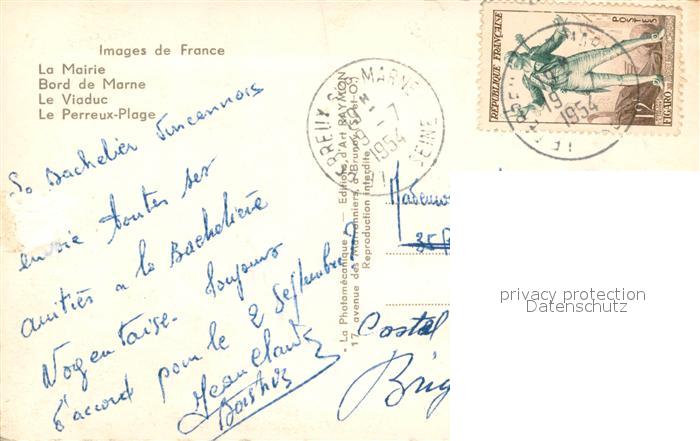 Images de France
La Mairie
Bord de Marne
Le Viaduc
Le Perreux-Plage
Le Bachelier Vincennois
envoie toutes ses
amitiés à la Bachelière
Nogentaise. Toujours
d'accord pour le 2 Septembre?
Jean Claude
LE PERREUX S/ MARNE
9 - 7
1954
SEINE
• La Photomécanique • — Editions d'Art RAYMON
17, avenue des Marronniers, à Brunoy (S.-et-O.)
Reproduction interdite
Mademoi
35
Costal
Brig
RÉPUBLIQUE FRANÇAISE
POSTES
12F
FIGARO
1954
privacy protection
Datenschutz